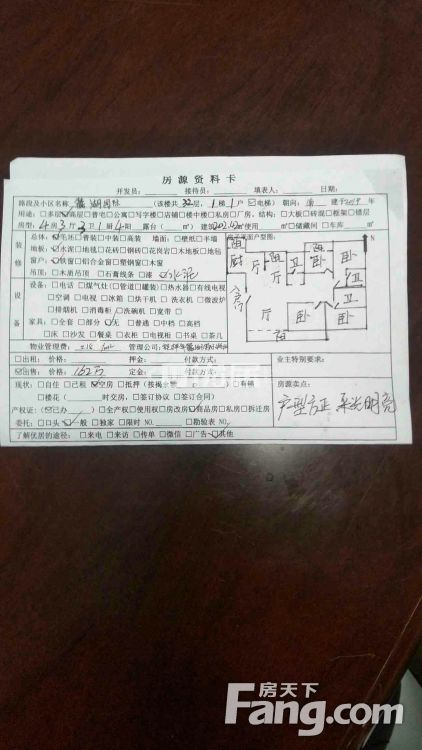 房源资料卡
开发员: 接待员: 填表人: 日期:
路段及小区名称: 湖国际 (该楼共 32 层, 1 梯 1 户 ☑电梯) 朝向: 南 建于2019年
用途: □多层 ☑高层 □普宅 □公寓 □写字楼 □店铺 □楼中楼 □私房 □厂房, 结构: □大板 □砖混 □框架 □错层
房型: 4房 3厅 3卫 1厨 4阳 露台( )㎡ 建筑202.02㎡使用 ㎡ □储藏间 □车库 ㎡
装修
总体: ☑毛坯 □普装 □中装 □高装 墙面: □壁纸 □半墙
地板: ☑水泥 □地毯 □花砖 □钢砖 □花岗岩 □木地板 □地毡
窗户: ☑铁窗 □铝合金窗 □塑钢窗 □木窗
吊顶: □木质吊顶 □石膏线条 □漆 ☑水泥
设备
设备: □电话 □煤气灶 □管道 □罐装 □热水器 □有线电视
□空调 □电视 □冰箱 □烘干机 □洗衣机 □微波炉
□排烟机 □消毒柜 □洗碗机 □宽带
家具: □全套 □部分 ☑无 □普通 □中档 □高档
□床 □沙发 □餐桌 □衣柜 □电视柜 □书桌 □茶几
户型图: N
阳 阳
厨 厅 阳 卫 卧 卧
厅
客 卫
厅 卧 卧
阳
物业管理费: 管理公司:
□出租: 价格: 押金: 付款方式: 业主特别要求:
☑出售: 价格: 162万 定金: 付款方式:
现状: □自住 □租 ☑空房 □抵押 (按揭 □有 □有辆 房源卖点:
□楼花( 时交房, □签审协议 □签订合同) 户型方正 采光明亮
产权证: (☑已办 □全产权 □使用权 □房改房 ☑商品房 □私房 □拆迁房
委托: □口头 ☑一般 □独家 □限时 NO. □勘验表 NO.
了解优居的途径: □来电 □来访 □传单 □微信 □广告 ☑其他
房天下
Fang.com